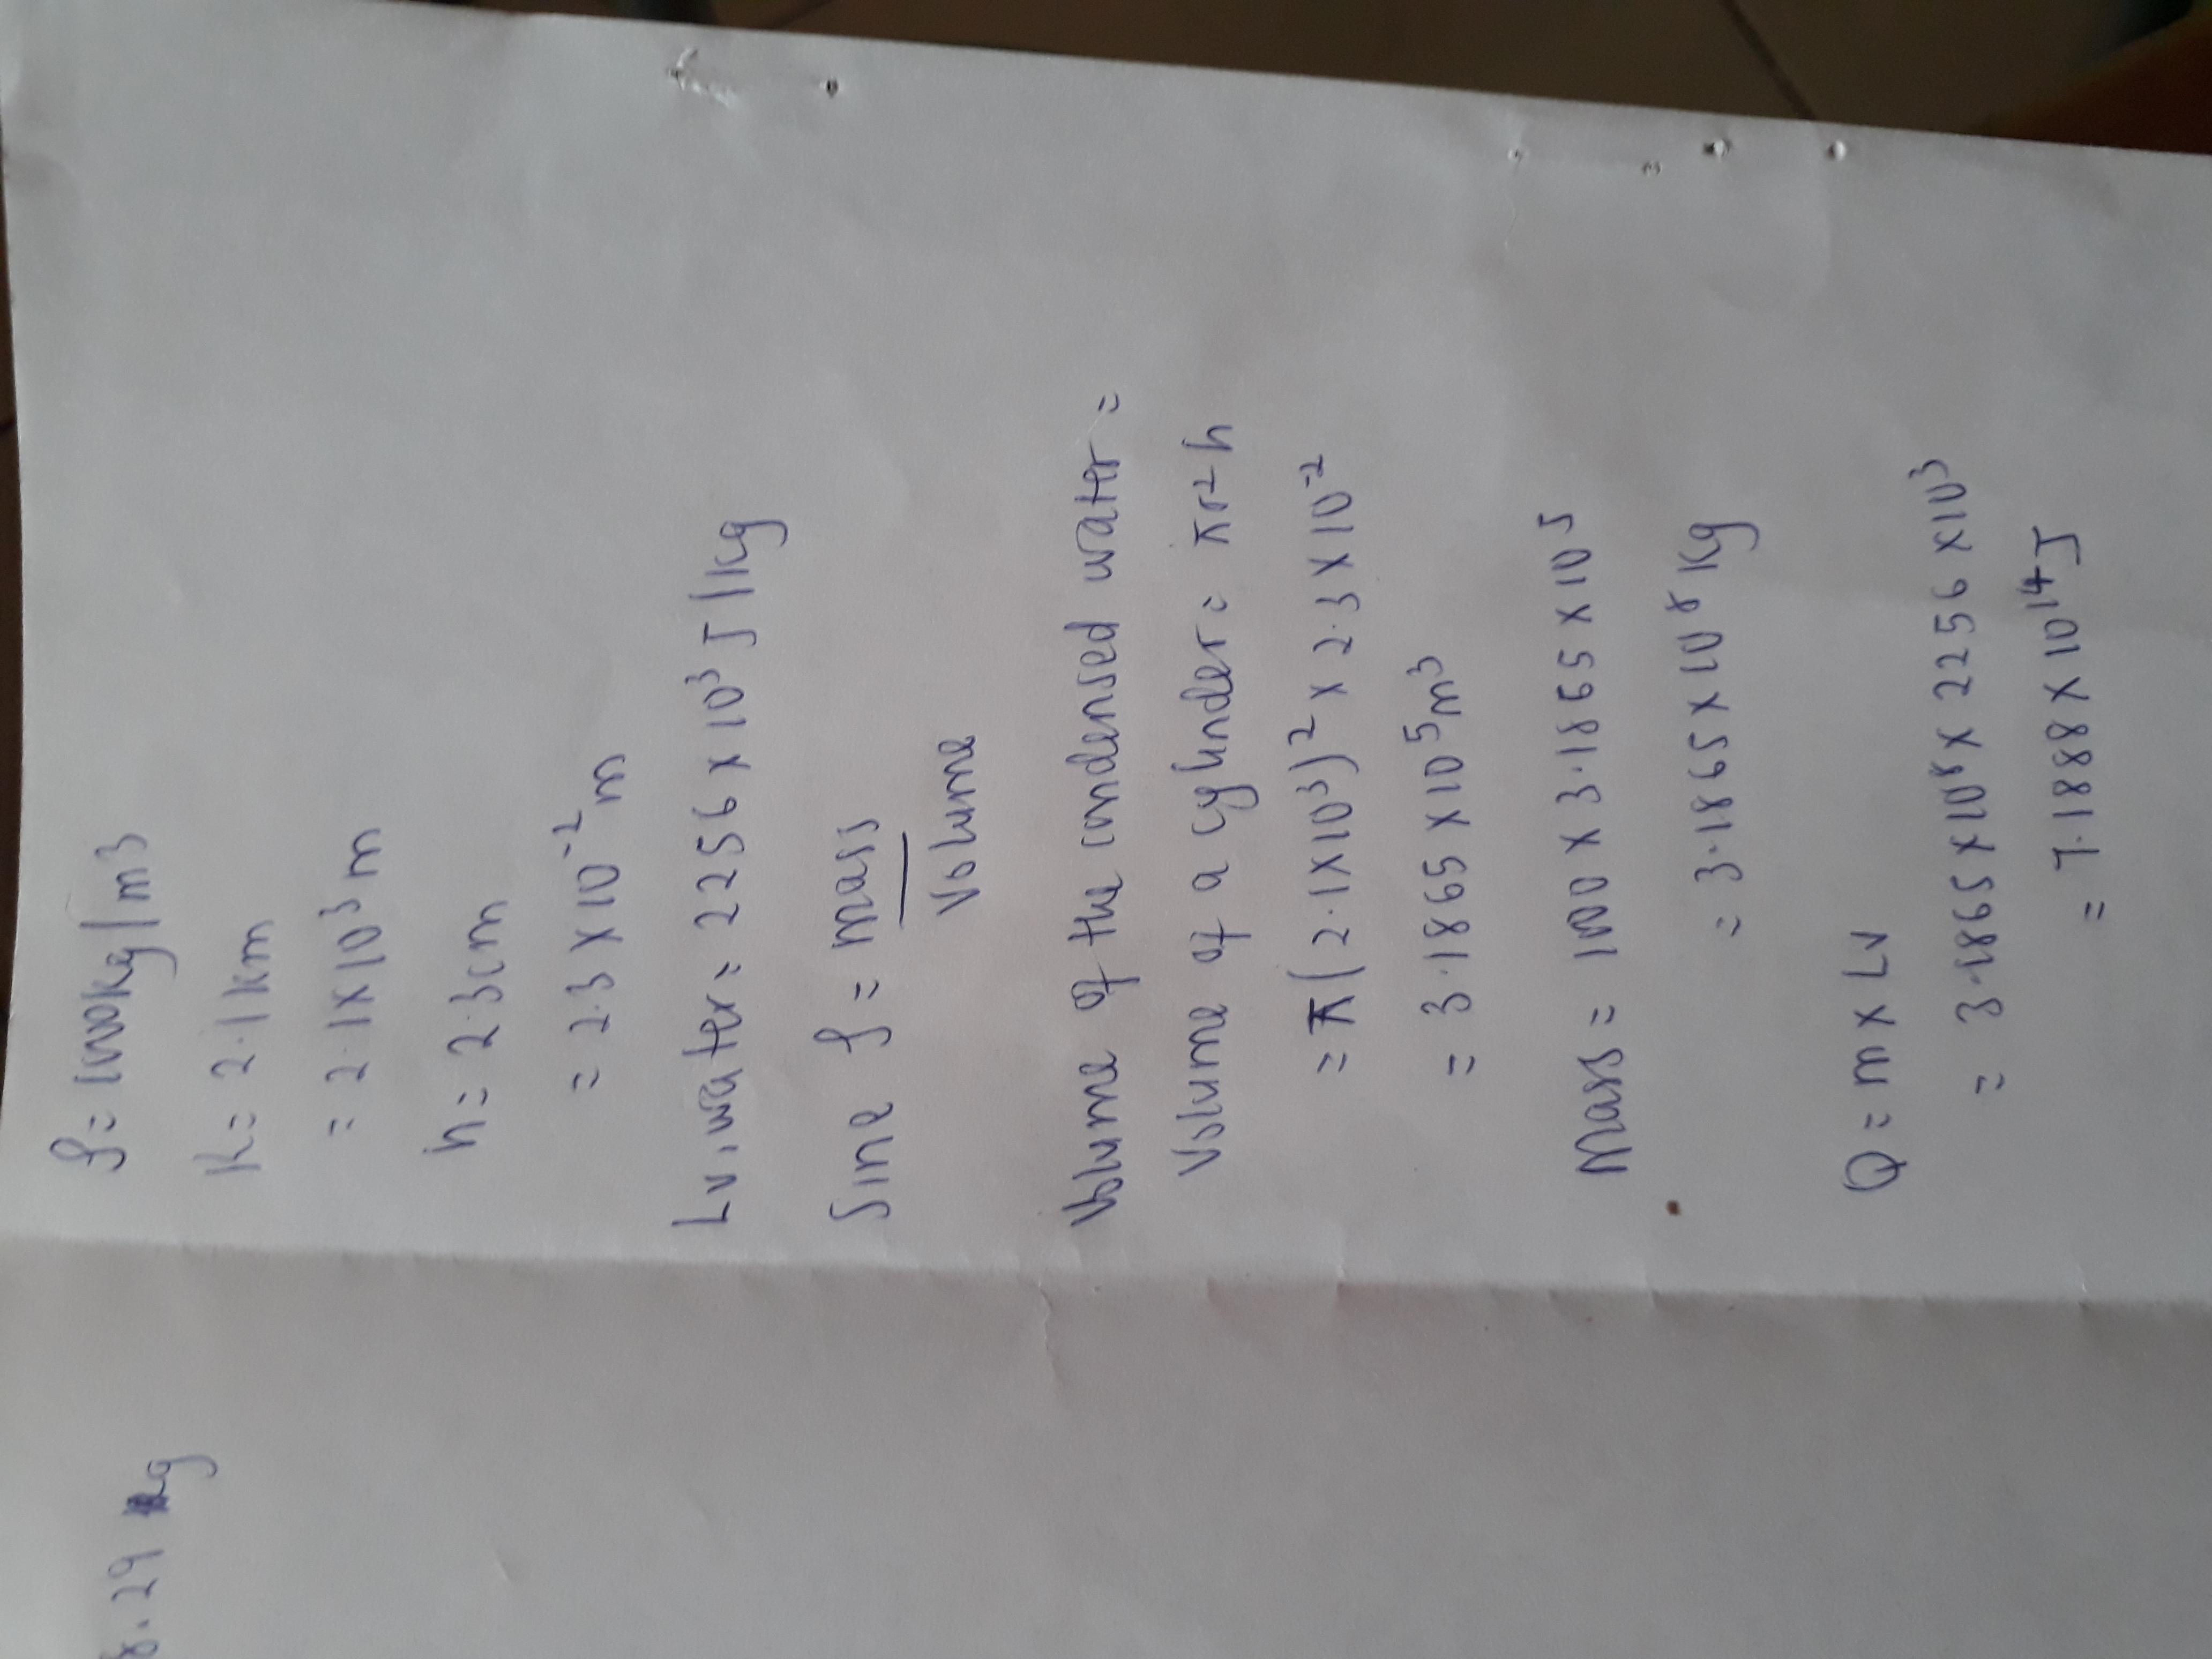 8.29 kg
ρ = 1000kg/m3
R = 2.1km
= 2.1×10³m
h = 2.3cm
= 2.3×10⁻²m
Lv,water = 2256×10³J/kg
Sine ρ = mass
Volume
Volume of the condensed water =
Volume of a cylinder = πr²h
= π(2.1×10³)²×2.3×10⁻²
= 3.1865×10⁵m³
Mass = 1000×3.1865×10⁵
= 3.1865×10⁸Kg
Q = m×Lv
= 3.1865×10⁸×2256×10³
= 7.1888×10¹⁴J